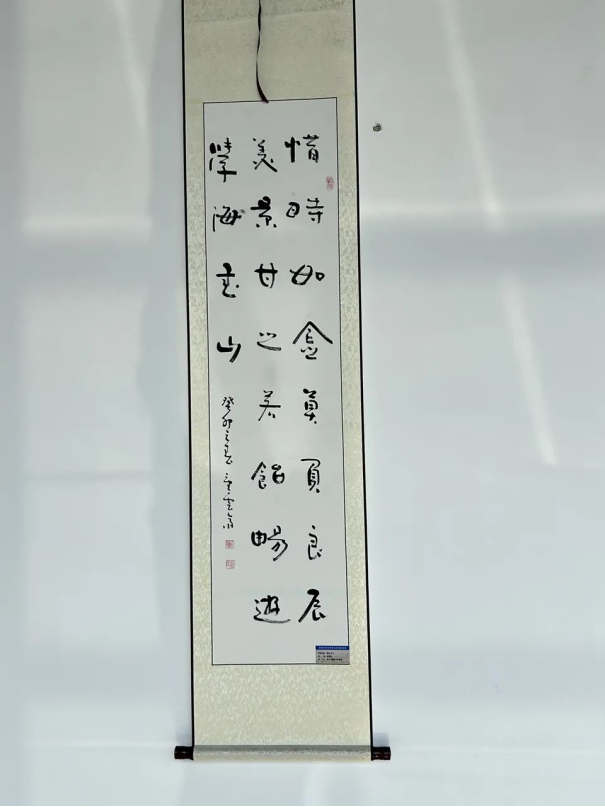 惜時如金莫負良辰
美景甘之若飴暢遊
學海書山
癸卯之